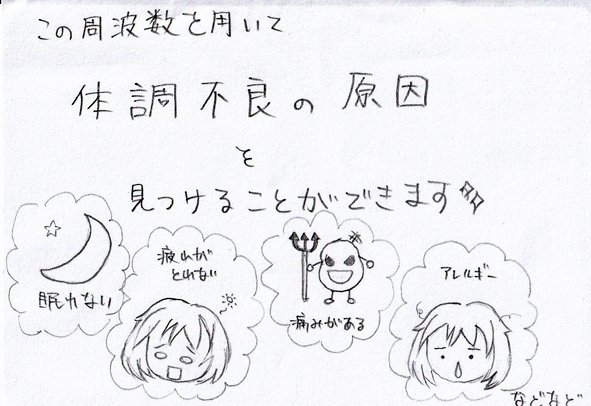 この周波数を用いて
体調不良の原因
を
見つけることができます
眠れない
疲れが
とれない
痛みがある
アレルギー
などなど